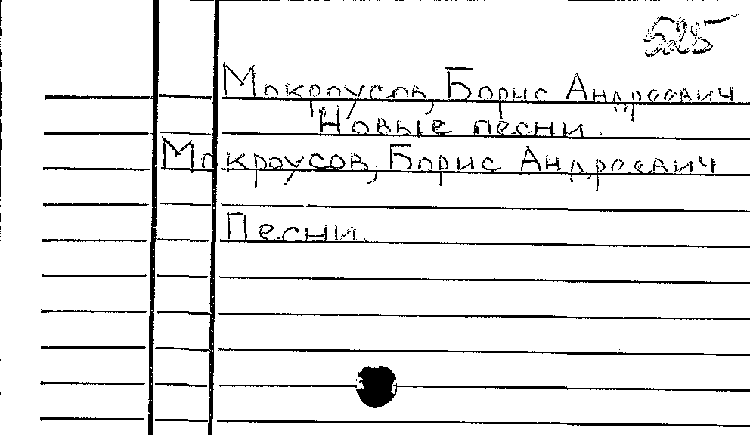 525
Мокроусов, Борис Андреевич
"Новые песни."
Мокроусов, Борис Андреевич
Песни.